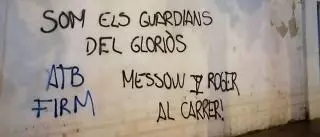 SOM ELS GUARDIANS
DEL GLORIÒS
ATB
FIRM
MESSOW Y ROGER
AL CARRER!